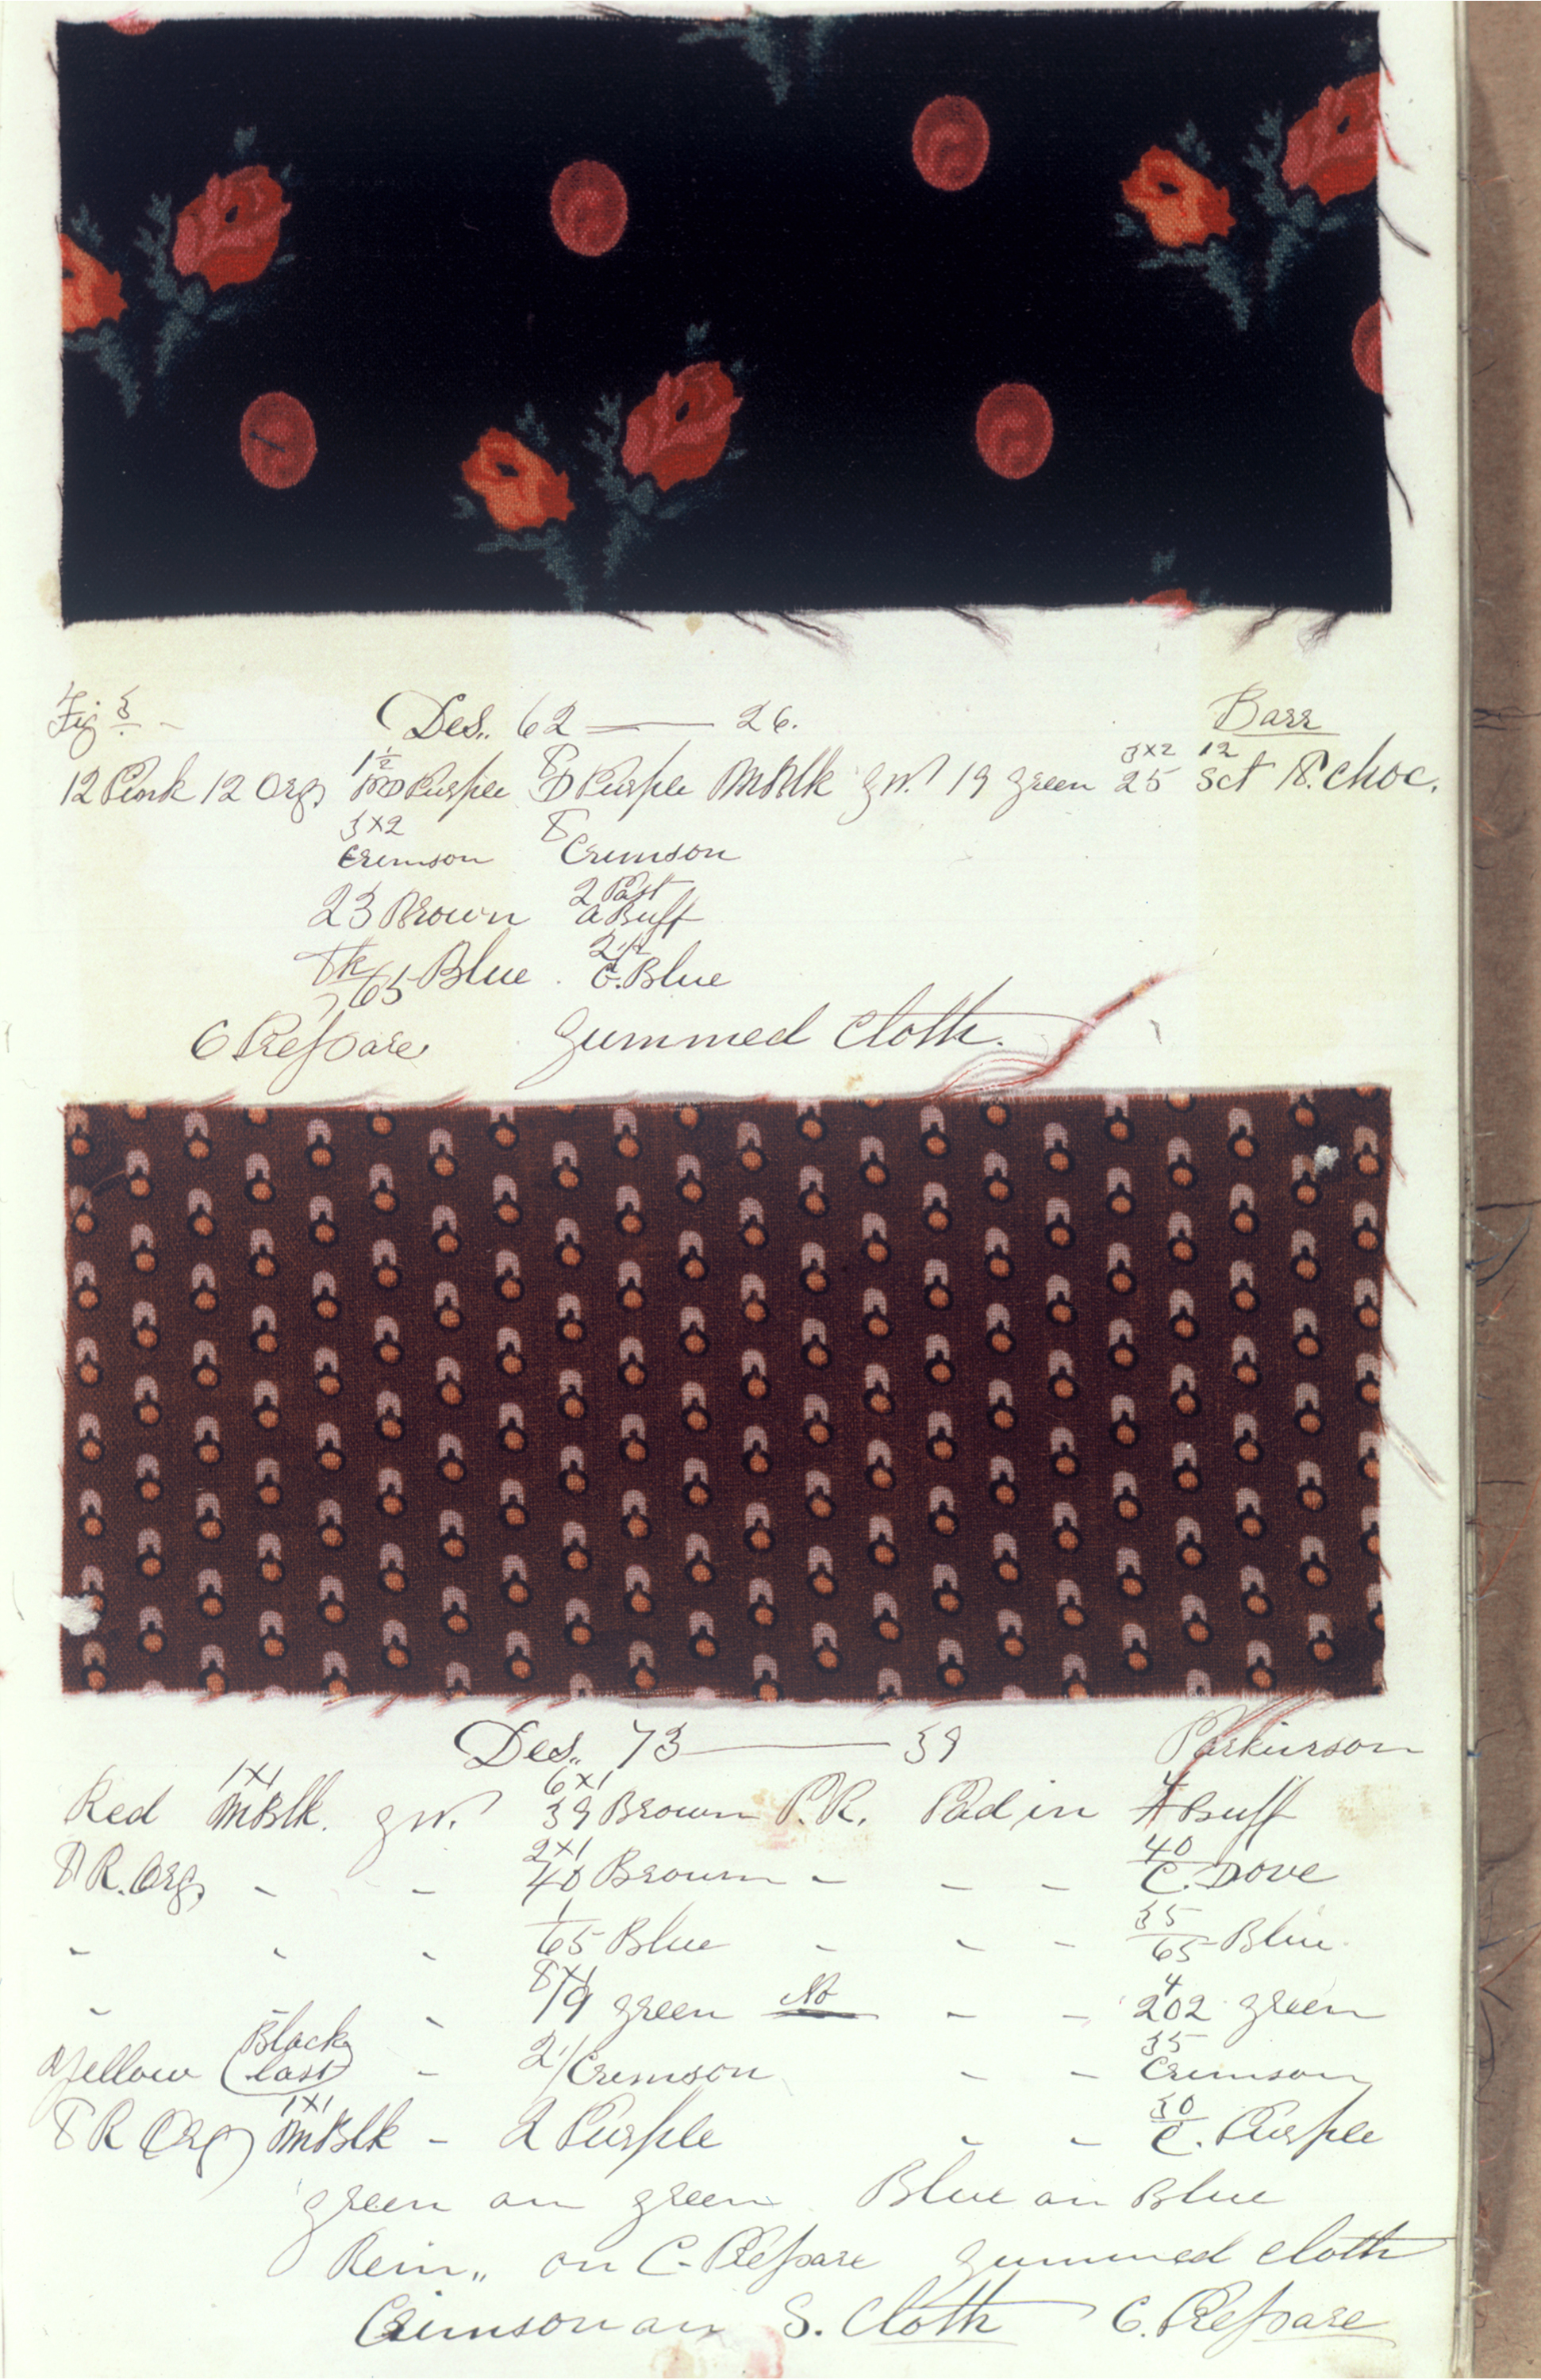 Fig 3 Des. 62 — 26. Barr
1½ 8 3x2 12
12 Pink 12 Org Purple D Purple MBlk gn. 19 green 25 Sct 8. Choc.
3x2 8
Crimson Crimson
2 Past
23 Brown a Buff
65 Blue C. Blue
C Prepare Gummed Cloth.
Des. 73 — 39 Parkinson
1x1 6x1 4
Red MBlk. gn. 39 Brown P.R. Pad in Buff
2x1 40
8 R. Org " " 40 Brown " " " C. Dove
1 35
" " " 65 Blue " " " 65 Blue
8x1 4
" " " 19 green No " " 202 green
Black 35
Yellow (last) " 2/1 Crimson " " Crimson
1x1 30
8 R Org MBlk " 2 Purple " " C. Purple
green on green Blue on Blue
Rem,, on C. Prepare Gummed Cloth
Crimson on S. Cloth C. Prepare